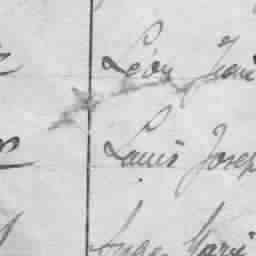 Léon Jean
Louis Josep
Ange Marie